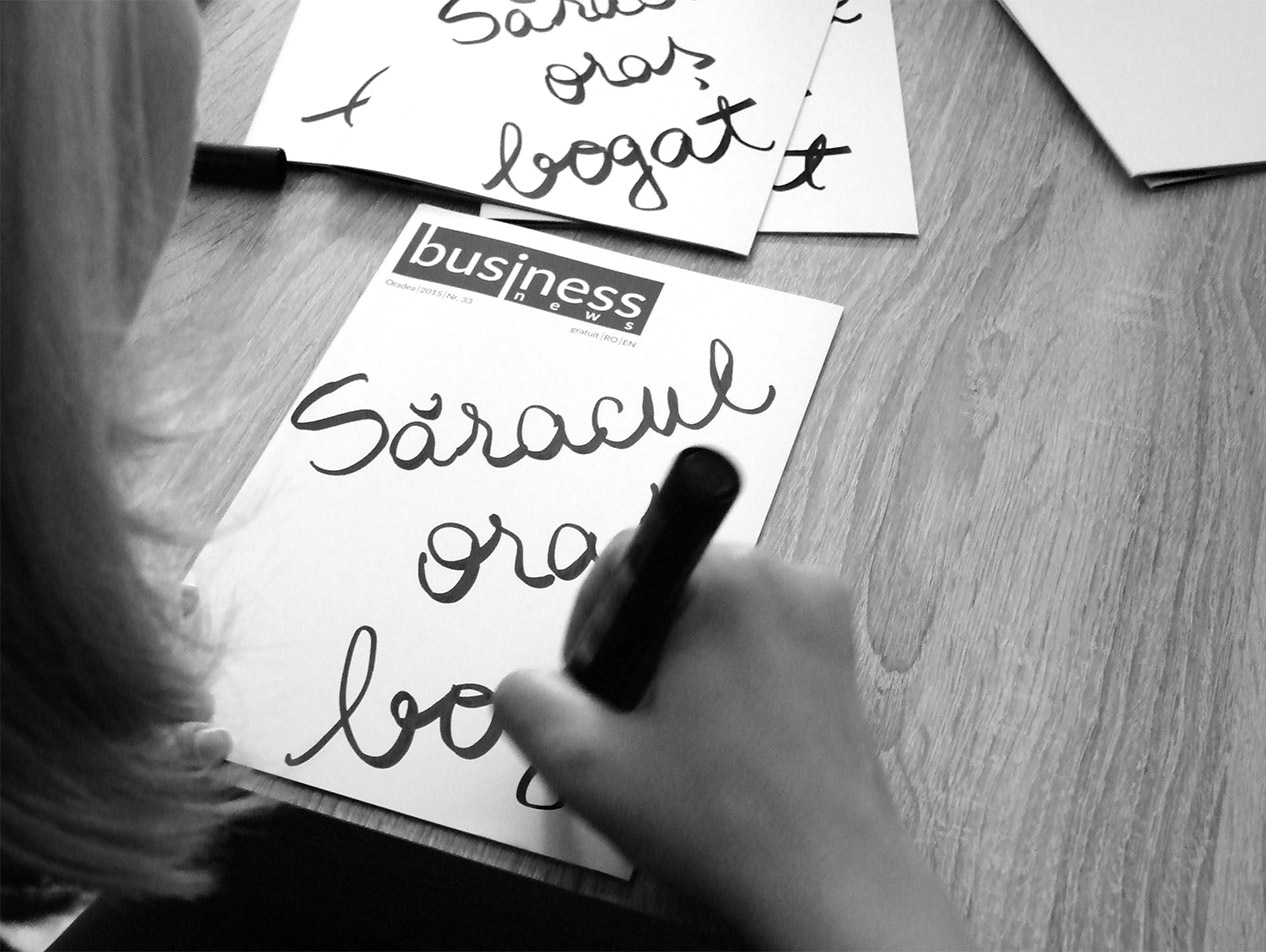 Săracul
oraș
bogat
t
business
news
Oradea | 2015 | Nr. 33
gratuit | RO | EN
Săracul
ora
bog